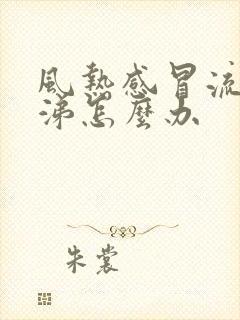 風熱感冒流
涕怎麼办
朱裳